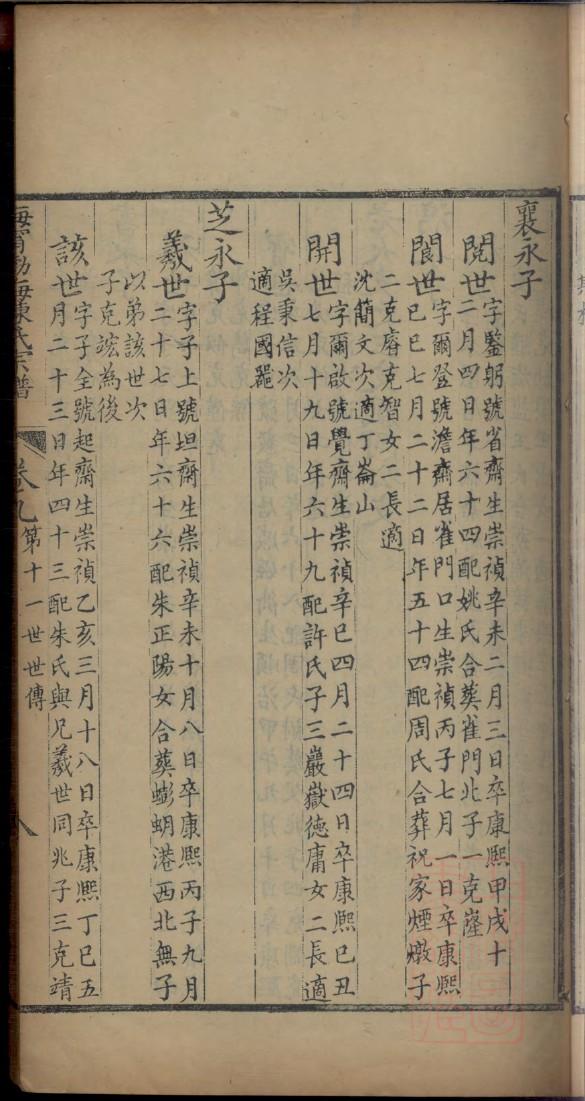 襄永子
閱世字鑒躬號省齋生崇禎辛未二月三日卒康熙甲戌十
二月四日年六十四配姚氏合葬雀門北子一克蓙
閬世字爾登號澹齋居雀門口生崇禎丙子七月一日卒康熙
己巳七月二十二日年五十四配周氏合葬祝家煙燉子
二克睿克智女二長適
沈簡文次適丁崙山
開世字爾啟號覺齋生崇禎辛巳四月二十四日卒康熙己丑
七月十九日年六十九配許氏子三巖嶽德庸女二長適
吳秉信次
適程國
芝永子
羲世字子上號坦齋生崇禎辛未十月八日卒康熙丙子九月
二十七日年六十六配朱正陽女合葬蟛蜞港西北無子
以弟該世次
子克誴為後
該世字子全號起齋生崇禎乙亥三月十八日卒康熙丁巳五
月二十三日年四十三配朱氏與兄羲世同兆子三克靖
海甯渤海陳氏宗譜
卷九
第十一世世傳
八